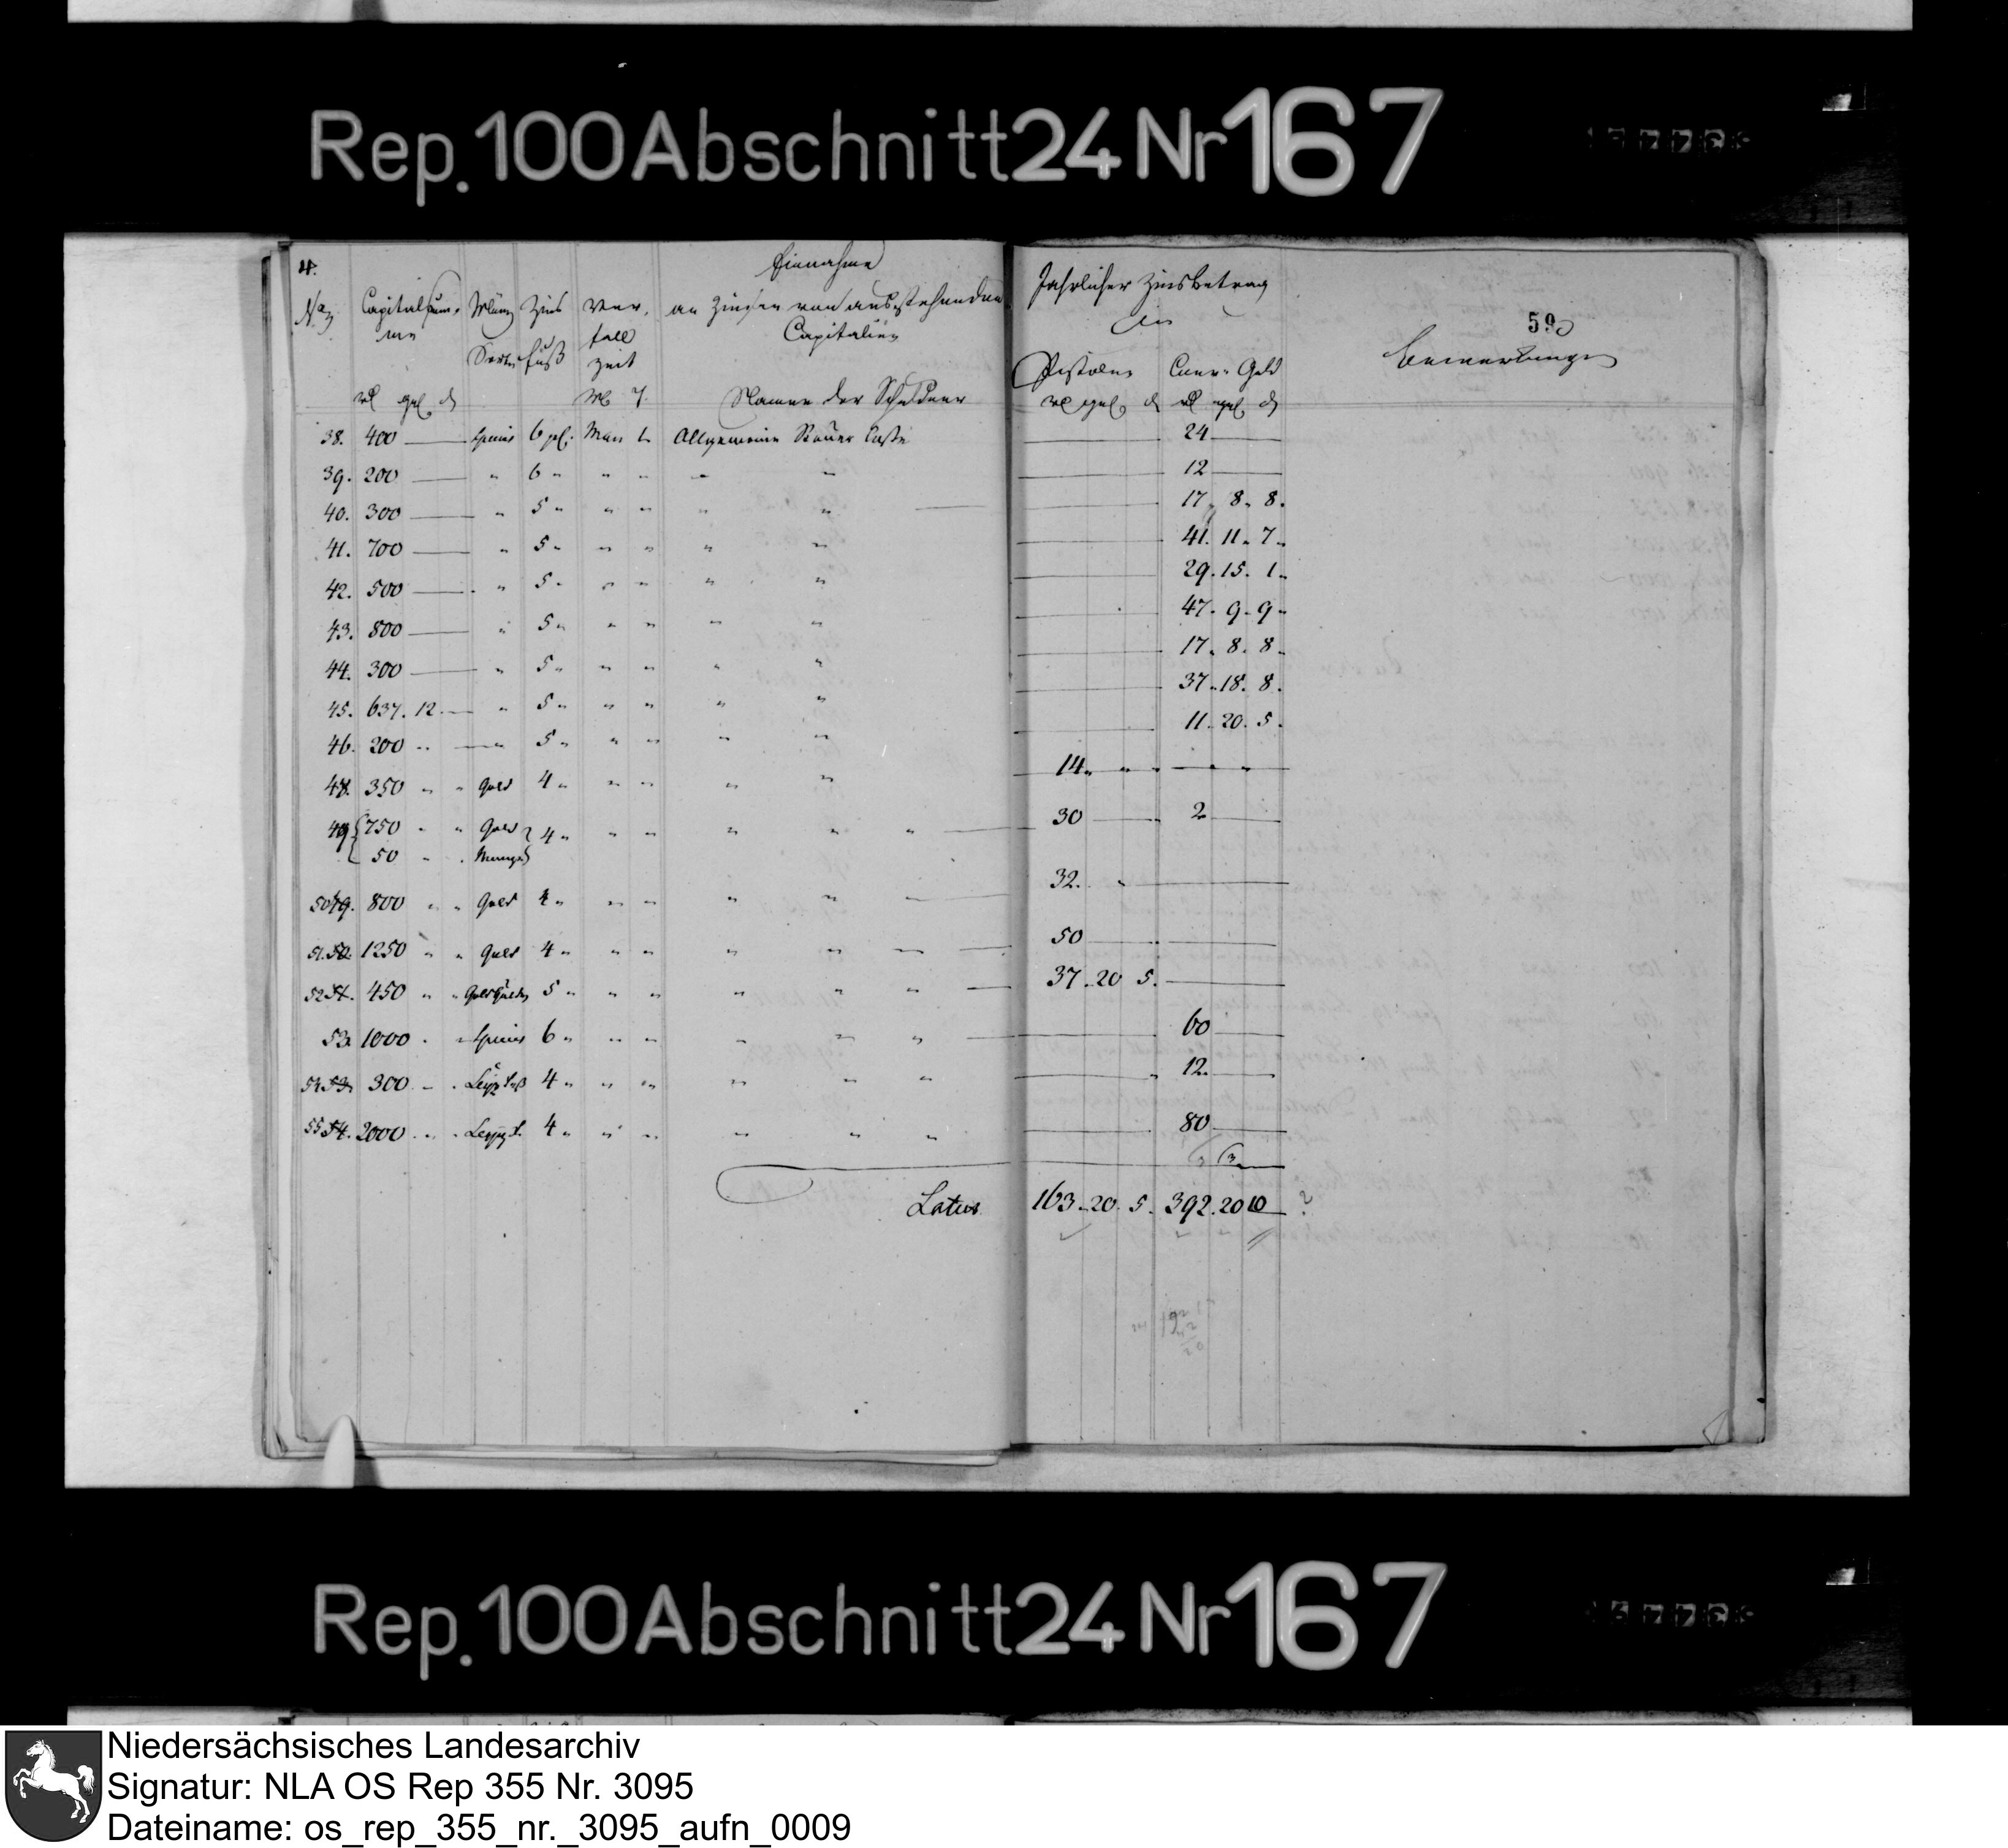 Rep. 100 Abschnitt 24 Nr 167
4. Einnahme
an Zinsen von ausstehenden
Capitalien
No Capitalsum- Münz Zins Ver-
me Sorten fuß fall
zeit
Namen der Schuldner
Jahrlicher Zinsbetrag
in
Pistolen Cour. Geld
59
Bemerkungen
38. 400 — 6 Allgemeine Steuer Casse — 24 —
39. 200 — " 6 " " " " " — 12 —
40. 300 — " 5 " " " " " — 17. 8. 8.
41. 700 — " 5 " " " " " — 41. 11. 7.
42. 500 — " 5 " " " " " — 29. 15. 1.
43. 800 — " 5 " " " " " — 47. 9. 9.
44. 300 — " 5 " " " " " — 17. 8. 8.
45. 637. 12. — " 5 " " " " " — 37. 18. 8.
46. 200 " — " 5 " " " " " — 11. 20. 5.
48. 350 " " Gold 4 " " " " " 14. " " — " "
49 { 750 " " Gold } 4 " " " " " " 30 — 2 —
50 " " Munze
50 49. 800 " " Gold 4 " " " " " 32. " —
51. 50. 1250 " " Gold 4 " " " " " " 50 —
52 51. 450 " " Goldgulden 5 " " " " " " 37. 20 5. —
53. 1000 " " 6 " " " " " " — 60 —
54 53. 300 " " 4 " " " " " " — 12. —
55 54. 2000 " " 4 " " " " " " — 80 —
Latus 163. 20. 5. 392. 20 10 ?
Rep. 100 Abschnitt 24 Nr 167
Niedersächsisches Landesarchiv
Signatur: NLA OS Rep 355 Nr. 3095
Dateiname: os_rep_355_nr._3095_aufn_0009